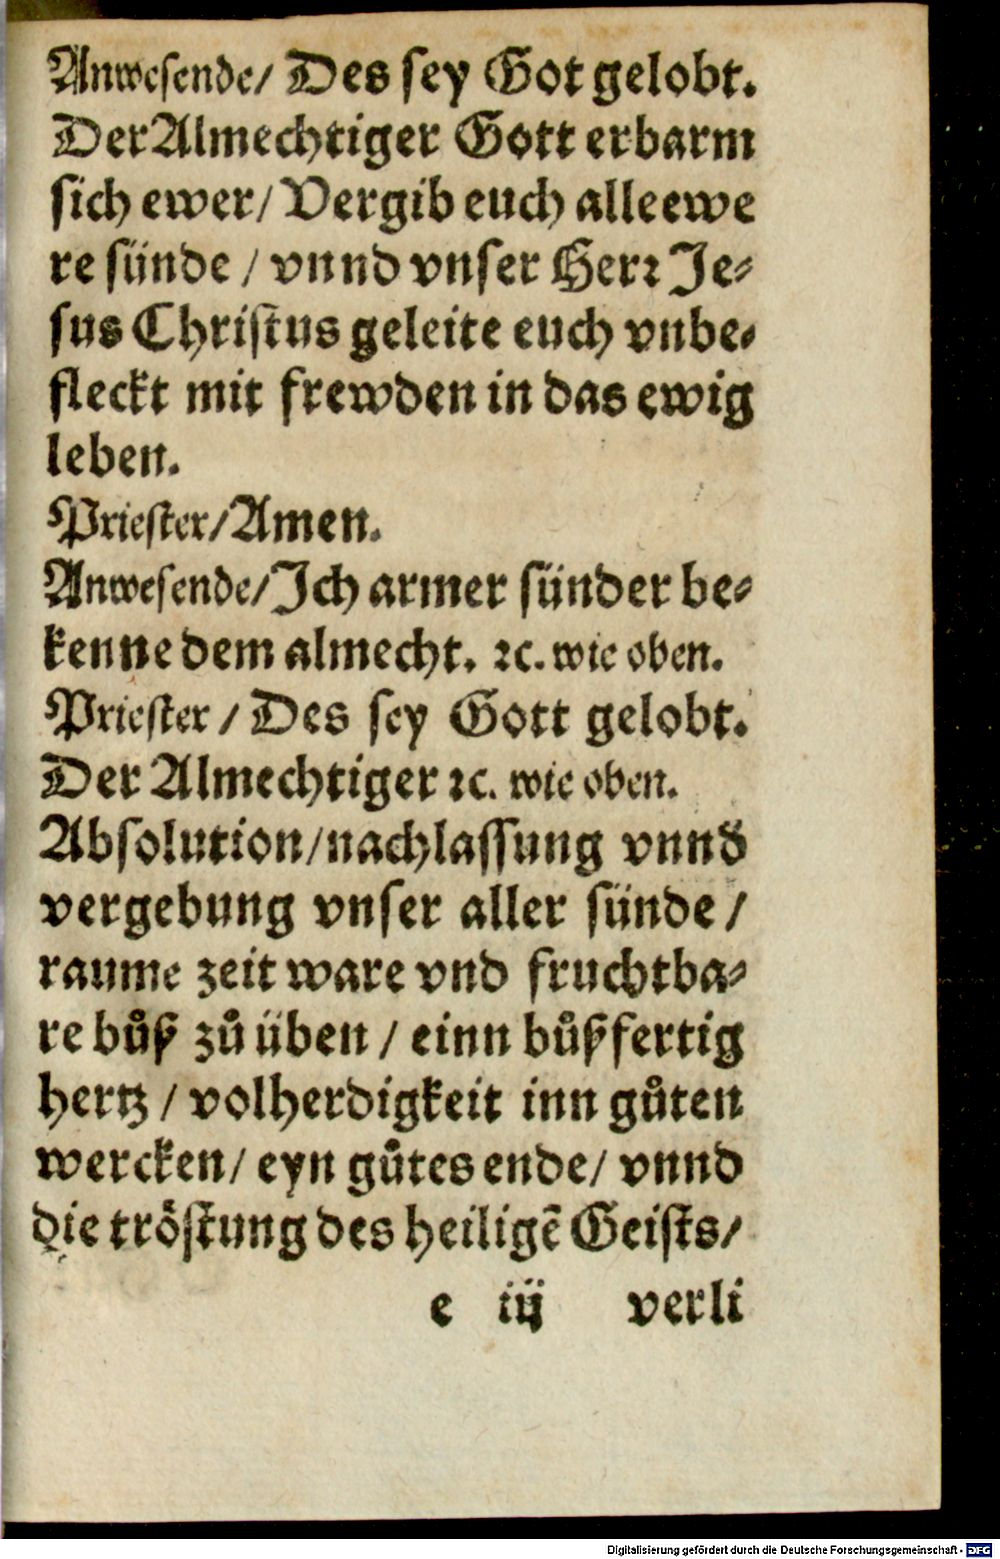 Anwesende/ Des sey Got gelobt.
Der Almechtiger Gott erbarm
sich ewer/ Vergib euch alle ewe
re sünde / vnnd vnser Herr Je-
sus Christus geleite euch vnbe-
fleckt mit frewden in das ewig
leben.
Priester/Amen.
Anwesende/Jch armer sünder be-
kenne dem almecht. ꝛc. wie oben.
Priester / Des sey Gott gelobt.
Der Almechtiger ꝛc. wie oben.
Absolution/nachlassung vnnd
vergebung vnser aller sünde /
raume zeit ware vnd fruchtba-
re bůß zů üben / einn bůßfertig
hertz / volherdigkeit inn gůten
wercken/ eyn gůtes ende/ vnnd
die tröstung des heiligē Geists/
e iij verli
Digitalisierung gefördert durch die Deutsche Forschungsgemeinschaft - DFG